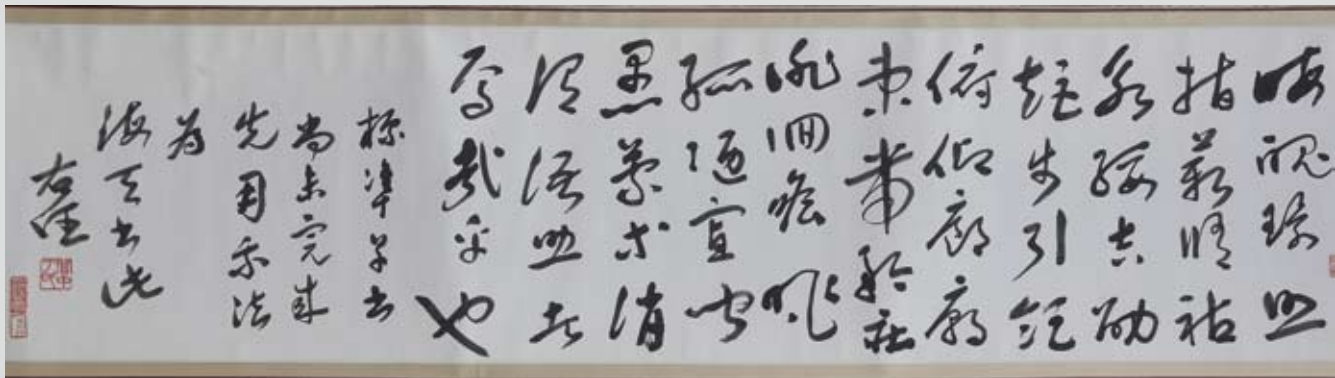 晦魄環照
指薪修祜
永綏吉劭
矩步引領
俯仰廊廟
束帶矜莊
徘徊瞻眺
孤陋寡聞
愚蒙等誚
謂語助者
焉哉乎也
標準草書
尚未完成
先用示法
為
海天書此
右任